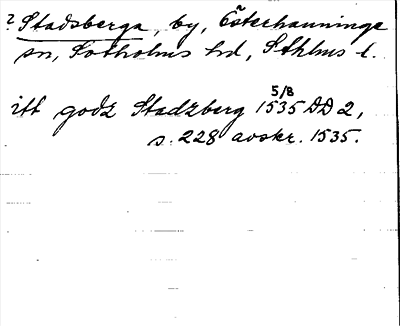 ? Stadsberga, by, Österhanninge
sn, Sotholms hd, Sthlms l.
itt godz Stadzberg 1535 5/8 DD 2,
s. 228 avskr. 1535.